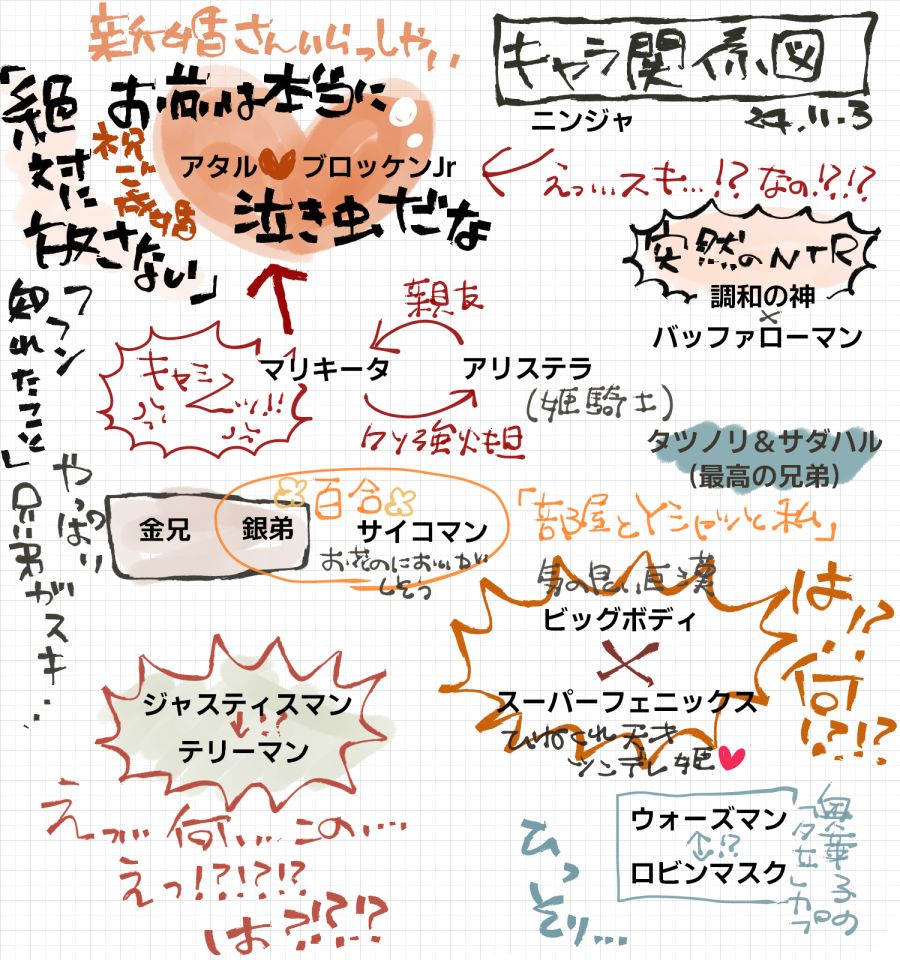 新婚さんいらっしゃい
キャラ関係図
24.11.3
ニンジャ
「絶対に許さない」
お前は本当に
泣き虫だな
祝ご成婚
アタル♥ブロッケンJr
えっ…スキ…!?なの!?!?
突然のNTR
調和の神
×
バッファローマン
フフン
知れたこと」
親友
マリキータ
アリステラ
(姫騎士)
クソ強火担
キャミーッ!!
タツノリ&サダハル
(最高の兄弟)
やっぱり
兄弟がスキ…
金兄
銀弟
百合
サイコマン
お花のにおいが
しそう
「部屋とYシャツと私」
身の良い巨漢
ビッグボディ
×
スーパーフェニックス
ひねくれ天才
ツンデレ姫♥
は!?
何!?!?
ジャスティスマン
↓!?
テリーマン
えっ…何…この…
えっ!?!?!?
は?!?!?
ひっそり…
ウォーズマン
↓!?
ロビンマスク